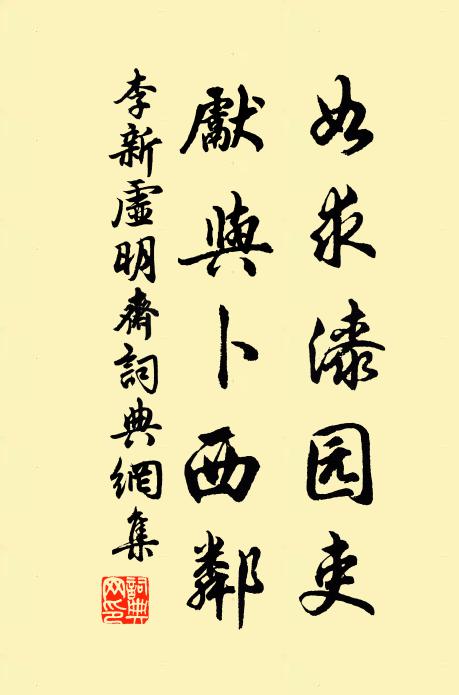 如求漆园吏
獻與卜西鄰
李新虛明齋詞典網集
詞典網印